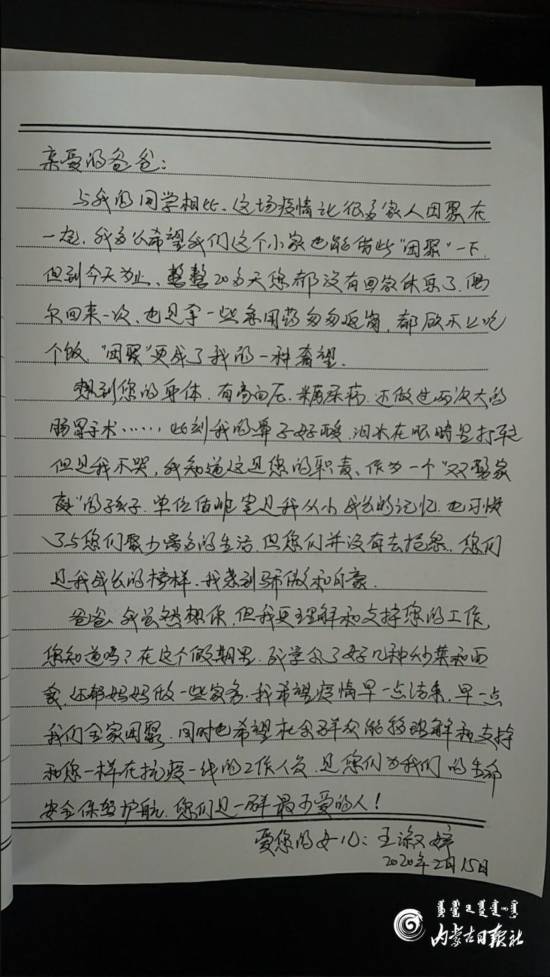 亲爱的爸爸：
与我的同学相比，这场疫情让很多家人团聚在
一起，我多么希望我们这个小家也能借此“团聚”一下，
但到今天为止，整整20多天您都没有回家休息了，偶
尔回来一次，也是拿一些常用药匆匆返岗，都顾不上吃
个饭，“团聚”更成了我的一种奢望。
想到您的身体，有高血压、糖尿病，还做过两次大的
肠胃手术……此刻我的鼻子好酸，泪水在眼睛里打转
但是我不哭，我知道这是您的职责，作为一个“双警家
庭”的孩子，单位值班室是我从小成长的记忆，也习惯
了与你们聚少离多的生活，但您们并没有去抱怨，您们
是我成长的榜样，我感到骄傲和自豪。
爸爸，我虽然想你，但我更理解和支持您的工作，
您知道吗？在这个假期里，我学会了好几种炒菜和面
食，还帮妈妈做一些家务，我希望疫情早一点结束，早一点
我们全家团聚，同时也希望社会群众能够理解和支持
和您一样在抗疫一线的工作人员，是您们为我们的生命
安全保驾护航，您们是一群最可爱的人！
爱您的女儿：王淑婷
2020年2月15日
内蒙古日报社